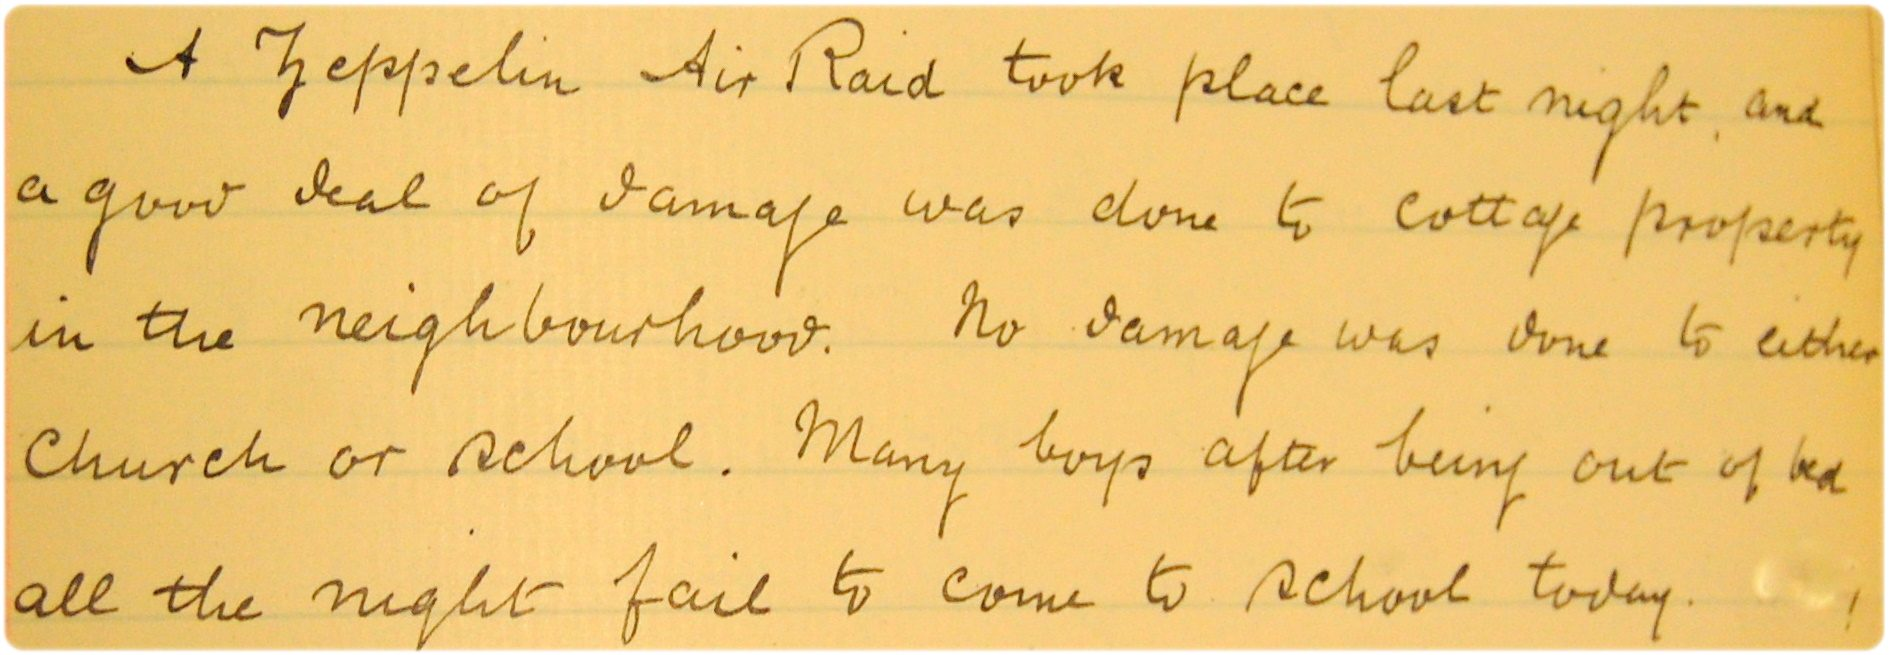 A Zeppelin Air Raid took place last night, and
a good deal of damage was done to cottage property
in the neighbourhood. No damage was done to either
Church or school. Many boys after being out of bed
all the night fail to come to school today.